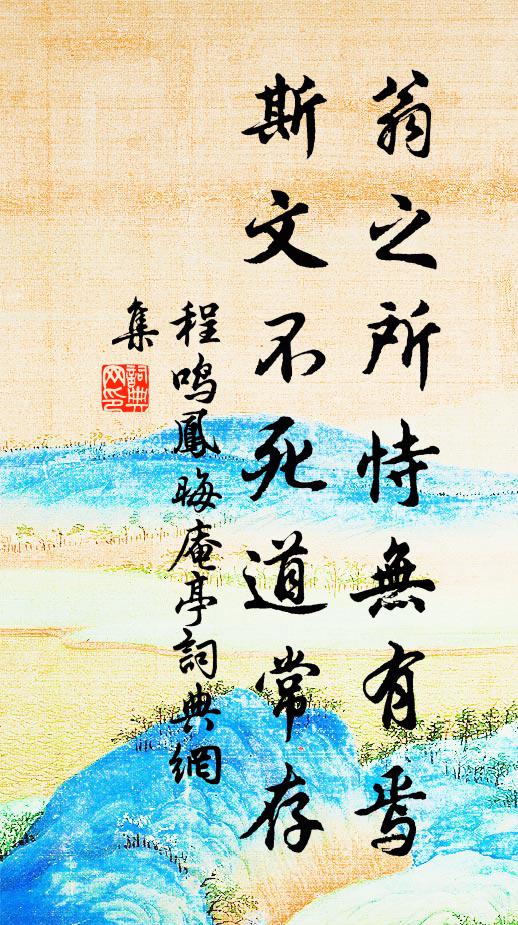 翁之所恃無有焉
斯文不死道常存
程鳴鳳晦庵亭詞典網
集
詞典網印